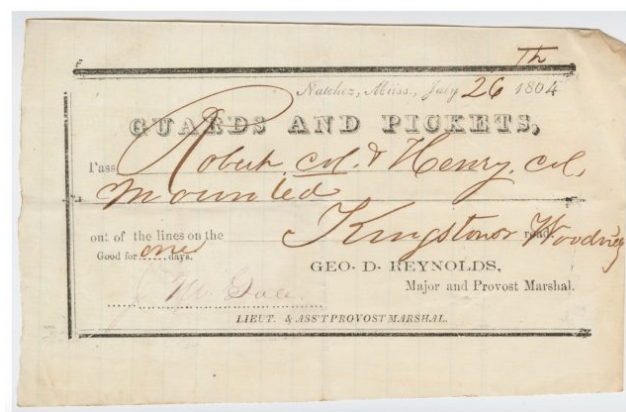 Th
Natchez, Miss., Jany 26 1864
GUARDS AND PICKETS,
Pass Robert, col. & Henry, col,
mounted
out of the lines on the Kingston or Woodville road.
Good for one days.
GEO. D. REYNOLDS,
Major and Provost Marshal.
LIEUT. & ASS'T PROVOST MARSHAL.